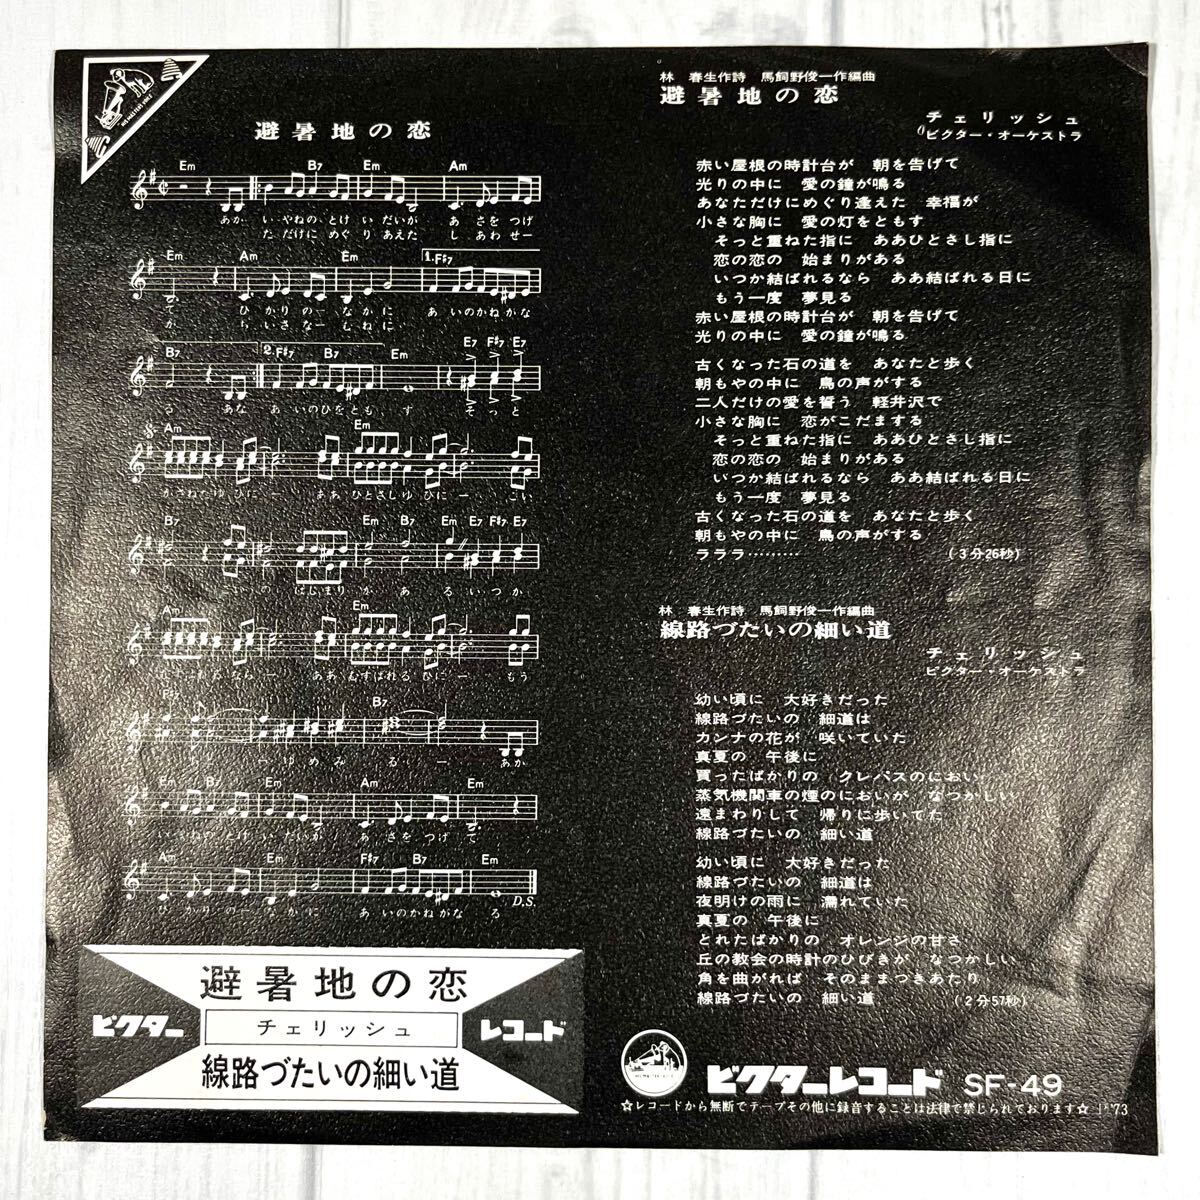 避暑地の恋
Em B7 Em Am
あか いやねの とけ い だいが あ さを つげ
た だけに めぐ り あえた し あわせー
Em Am Em 1. F♯7
て ひかり のー なかに あいのかねがな
か ちいさ なー むねに
B7 2. F♯7 B7 Em E7 F♯7 E7
る あな あ いのひを とも す そっ と
Am Em
かさねた ゆ びに ー ああ ひとさし ゆ びに ー こい
B7 Em B7 Em E7 F♯7 E7
はじまり が あ る いつ か
Am Em
ばれる なら ー ああ むすばれる ひに ー もう
F♯7 B7
ー ゆめ み る ー あか
Em B7 Em Am Em
い やねの とけ い だいが あ さを つげ て
Am Em F♯7 B7 Em
ひかり のー なかに あ いのかねがな る D.S.
避暑地の恋
ビクター チェリッシュ レコード
線路づたいの細い道
林 春生作詩 馬飼野俊一作編曲
避暑地の恋
チェリッシュ
ビクター・オーケストラ
赤い屋根の時計台が 朝を告げて
光りの中に 愛の鐘が鳴る
あなただけにめぐり逢えた 幸福が
小さな胸に 愛の灯をともす
そっと重ねた指に ああひとさし指に
恋の恋の 始まりがある
いつか結ばれるなら ああ結ばれる日に
もう一度 夢見る
赤い屋根の時計台が 朝を告げて
光りの中に 愛の鐘が鳴る
古くなった石の道を あなたと歩く
朝もやの中に 鳥の声がする
二人だけの愛を誓う 軽井沢で
小さな胸に 恋がこだまする
そっと重ねた指に ああひとさし指に
恋の恋の 始まりがある
いつか結ばれるなら ああ結ばれる日に
もう一度 夢見る
古くなった石の道を あなたと歩く
朝もやの中に 鳥の声がする
ラララ‥‥‥‥ (3分26秒)
林 春生作詩 馬飼野俊一作編曲
線路づたいの細い道
チェリッシュ
ビクター・オーケストラ
幼い頃に 大好きだった
線路づたいの 細道は
カンナの花が 咲いていた
真夏の 午後に
買ったばかりの クレパスのにおい
蒸気機関車の煙のにおいが なつかしい
遠まわりして 帰りに歩いてた
線路づたいの 細い道
幼い頃に 大好きだった
線路づたいの 細道は
夜明けの雨に 濡れていた
真夏の 午後に
とれたばかりの オレンジの甘さ
丘の教会の時計のひびきが なつかしい
角を曲がれば そのままつきあたり
線路づたいの 細い道 (2分57秒)
ビクターレコード SF-49
☆レコードから無断でテープその他に録音することは法律で禁じられております☆ '73